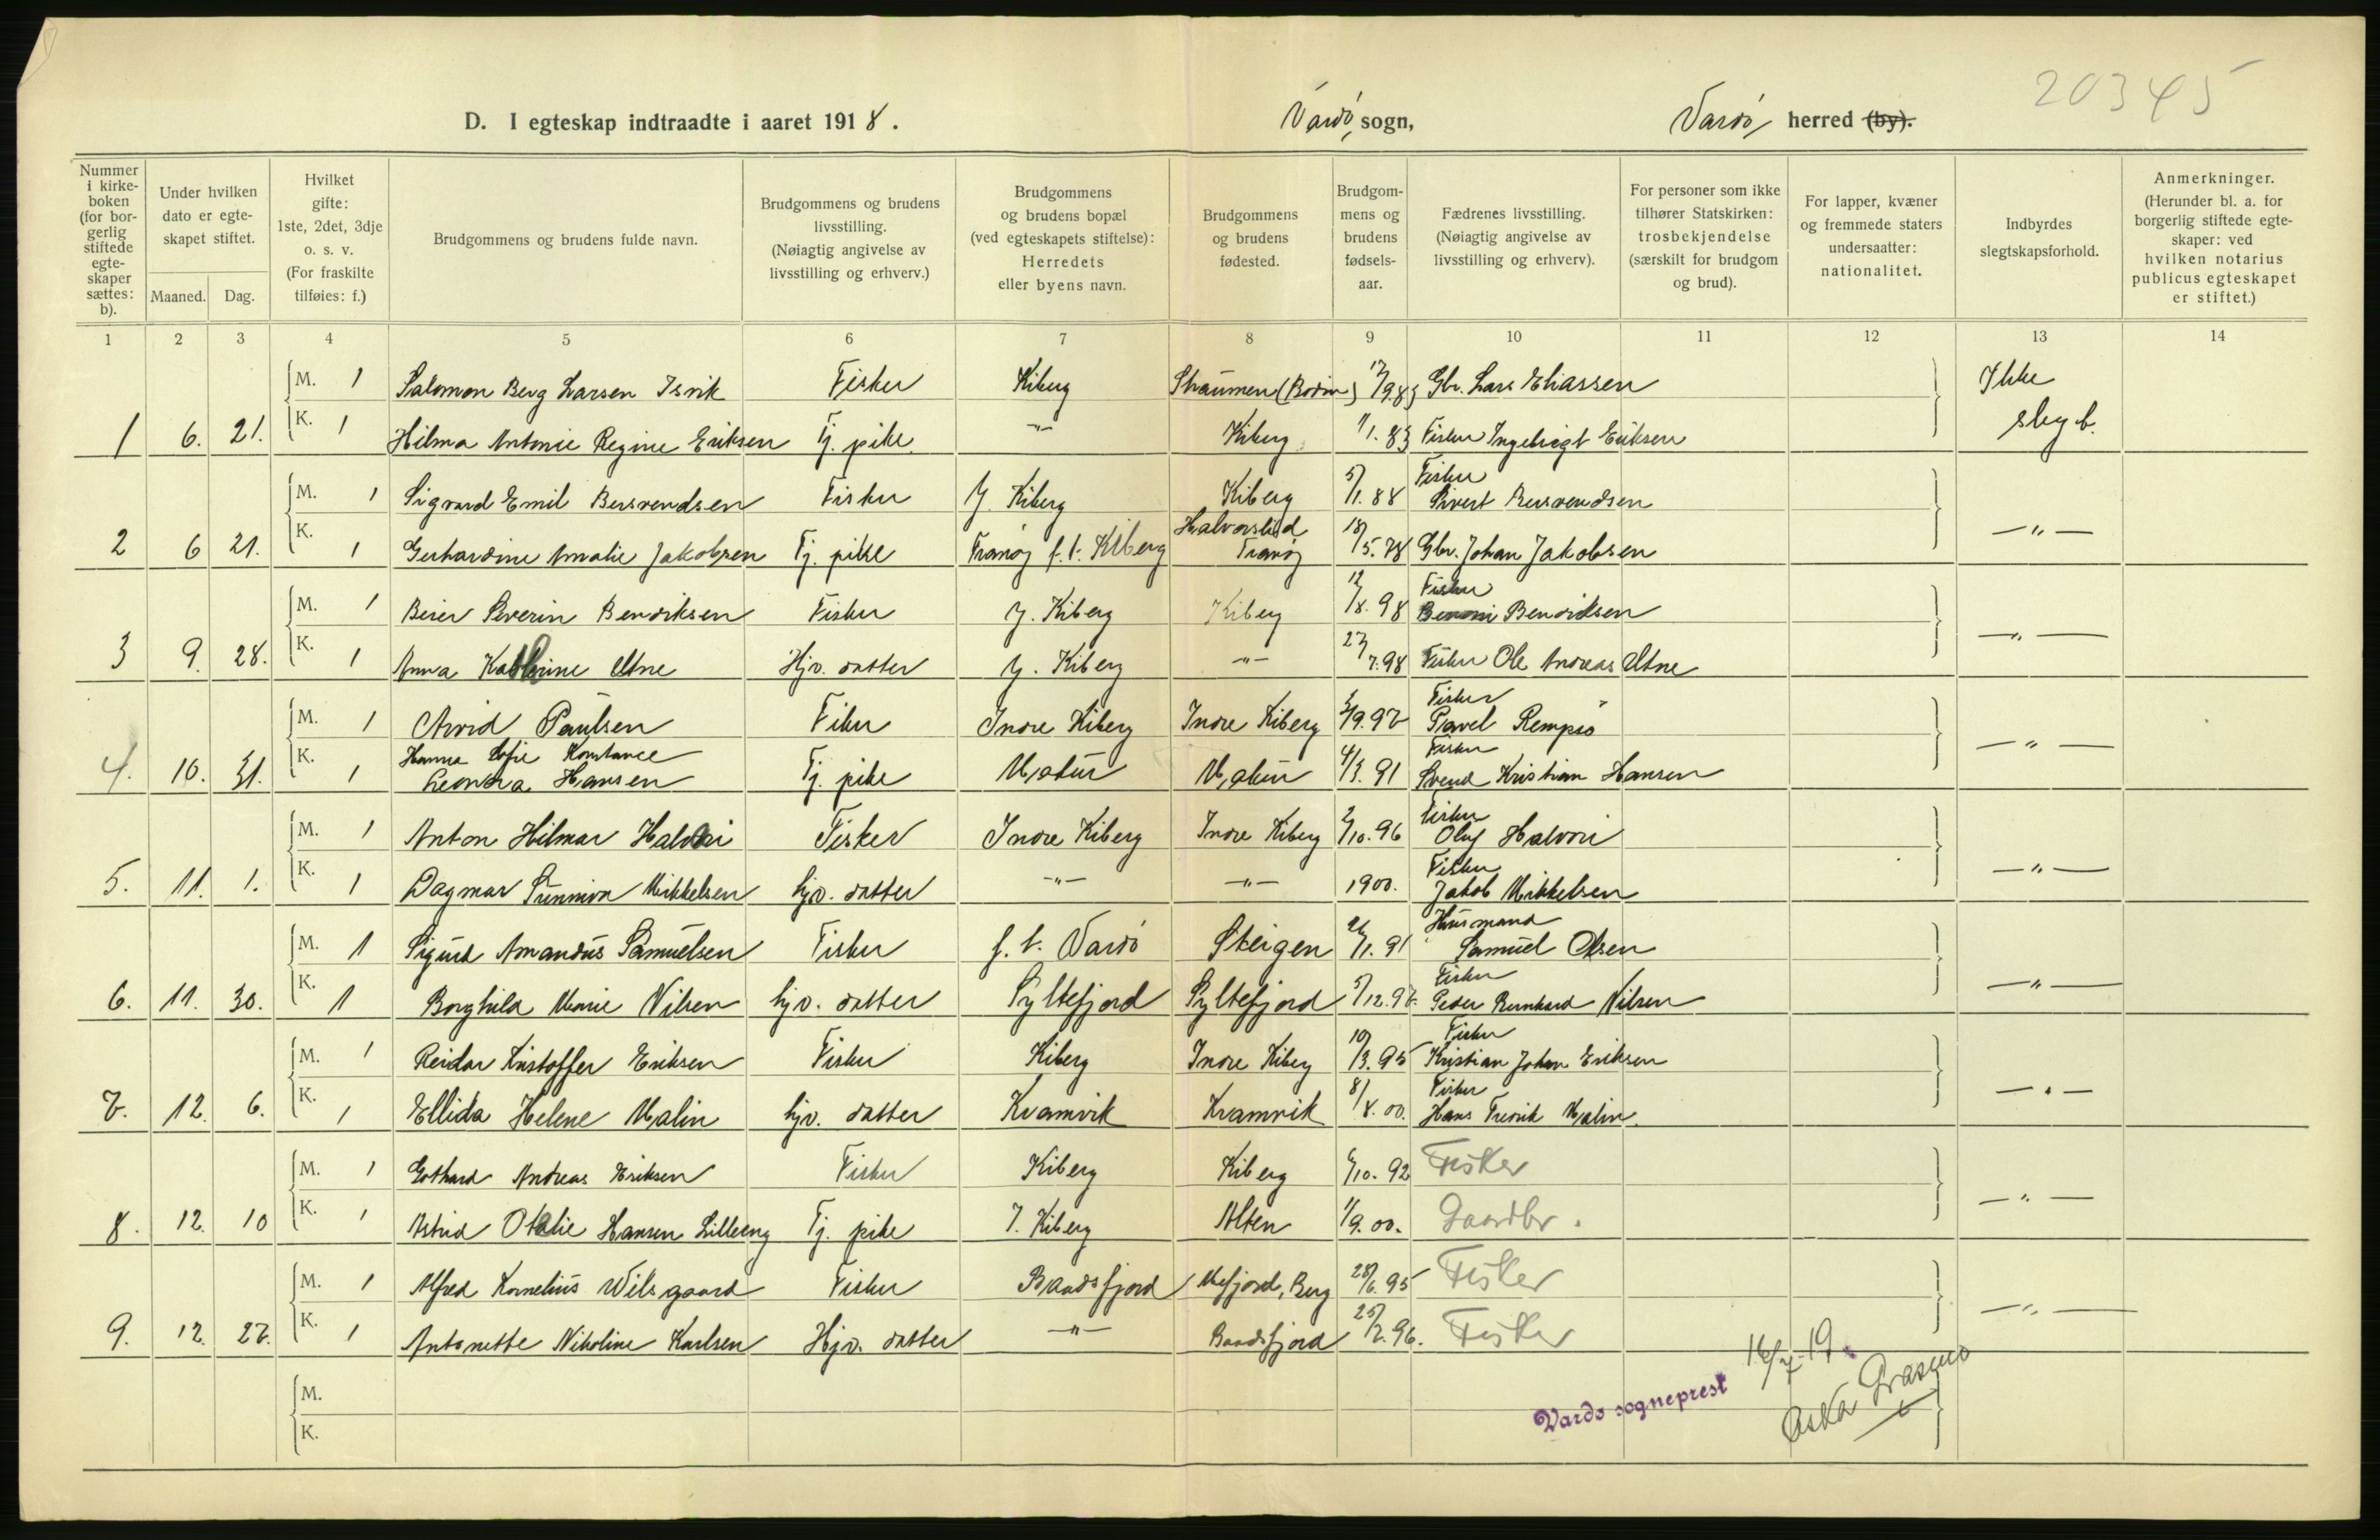 20345
D. I egteskap indtraadte i aaret 1918. Vardö sogn, Vardö herred (by).
Nummer i kirke-boken (for bor-gerlig stiftede egte-skaper sættes: b).
Under hvilken dato er egte-skapet stiftet.
Maaned. Dag.
Hvilket gifte: 1ste, 2det, 3dje o. s. v. (For fraskilte tilføies: f.)
Brudgommens og brudens fulde navn.
Brudgommens og brudens livsstilling. (Nøiagtig angivelse av livsstilling og erhverv.)
Brudgommens og brudens bopæl (ved egteskapets stiftelse): Herredets eller byens navn.
Brudgommens og brudens fødested.
Brudgom-mens og brudens fødsels-aar.
Fædrenes livsstilling. (Nøiagtig angivelse av livsstilling og erhverv).
For personer som ikke tilhører Statskirken: trosbekjendelse (særskilt for brudgom og brud).
For lapper, kvæner og fremmede staters undersaatter: nationalitet.
Indbyrdes slegtskapsforhold.
Anmerkninger. (Herunder bl. a. for borgerlig stiftede egte-skaper: ved hvilken notarius publicus egteskapet er stiftet.)
1 2 3 4 5 6 7 8 9 10 11 12 13 14
M. 1 Salomon Berg Larsen Isvik Fisker Kiberg Straumen (Bodin) 17/9.83 Gbr. Lars Eliassen Ikke
1 6. 21. K. 1 Hilma Antonie Regine Eriksen Tj. pike -"- Kiberg 1/1.83 Fisker Ingebrigt Eriksen slegt.
M. 1 Sigvard Emil Bersvendsen Fisker Y. Kiberg Kiberg 5/1.88 Fisker Sivert Bersvendsen
2 6 21. K. 1 Gerhardine Amalie Jakobsen Tj. pike Tranøy f.t. Kiberg Halvorslid Tranøy 18/5.78 Gbr. Johan Jakobsen -"-
M. 1 Beier Severin Bendiksen Fisker Y. Kiberg Kiberg 12/8.98 Fisker Benoni Bendiksen
3 9. 28. K. 1 Anna Kathrine Utne Hjv. datter Y. Kiberg -"- 27/7.98 Fisker Ole Andreas Utne -"-
M. 1 Arvid Paulsen Fiker Indre Kiberg Indre Kiberg 2/9.97 Fisker Pavel Rempsö
4. 10. 31. K. 1 Hanna Sofie Konstance Leonora Hansen Tj. pike Makur Makur 4/3.91 Fisker Svend Kristian Hansen -"-
M. 1 Anton Hilmar Halvari Fisker Indre Kiberg Indre Kiberg 2/10.96 Fisker Oluf Halvari
5. 11. 1. K. 1 Dagmar Sunniva Mikkelsen hjv. datter -"- -"- 1900. Fisker Jakob Mikkelsen -"-
M. 1 Sigurd Amandus Samuelsen Fisker f.t. Vardö Steigen 26/1.91 Husmand Samuel Olsen
6. 11. 30. K. 1 Borghild Marie Nilsen hjv. datter Syltefjord Syltefjord 5/12.97. Fisker Peder Bernhard Nilsen -"-
M. 1 Reidar Kristoffer Eriksen Fisker Kiberg Indre Kiberg 10/3.95 Fisker Kristian Johan Eriksen
7. 12. 6. K. 1 Ellida Helene Malin hjv. datter Kvamvik Kramvik 8/8.00. Fisker Hans Fredrik Malin. -"-
M. 1 Gothard Andreas Eriksen Fisker Kiberg Kiberg 6/10.92 Fisker
8. 12. 10 K. 1 Astrid Otelie Hansen Lilleeng Tj. pike I. Kiberg Alten 1/9.00. Gaardbr. -"-
M. 1 Alfred Kornelius Wilsgaard Fisker Baadsfjord Mefjord, Berg 28/6.95 Fisker
9. 12. 27. K. 1 Antonette Nikoline Karlsen Hjv. datter -"- Baadsfjord 25/2.96. Fisker -"-
M.
K.
Vardø sogneprest 16/7.19.